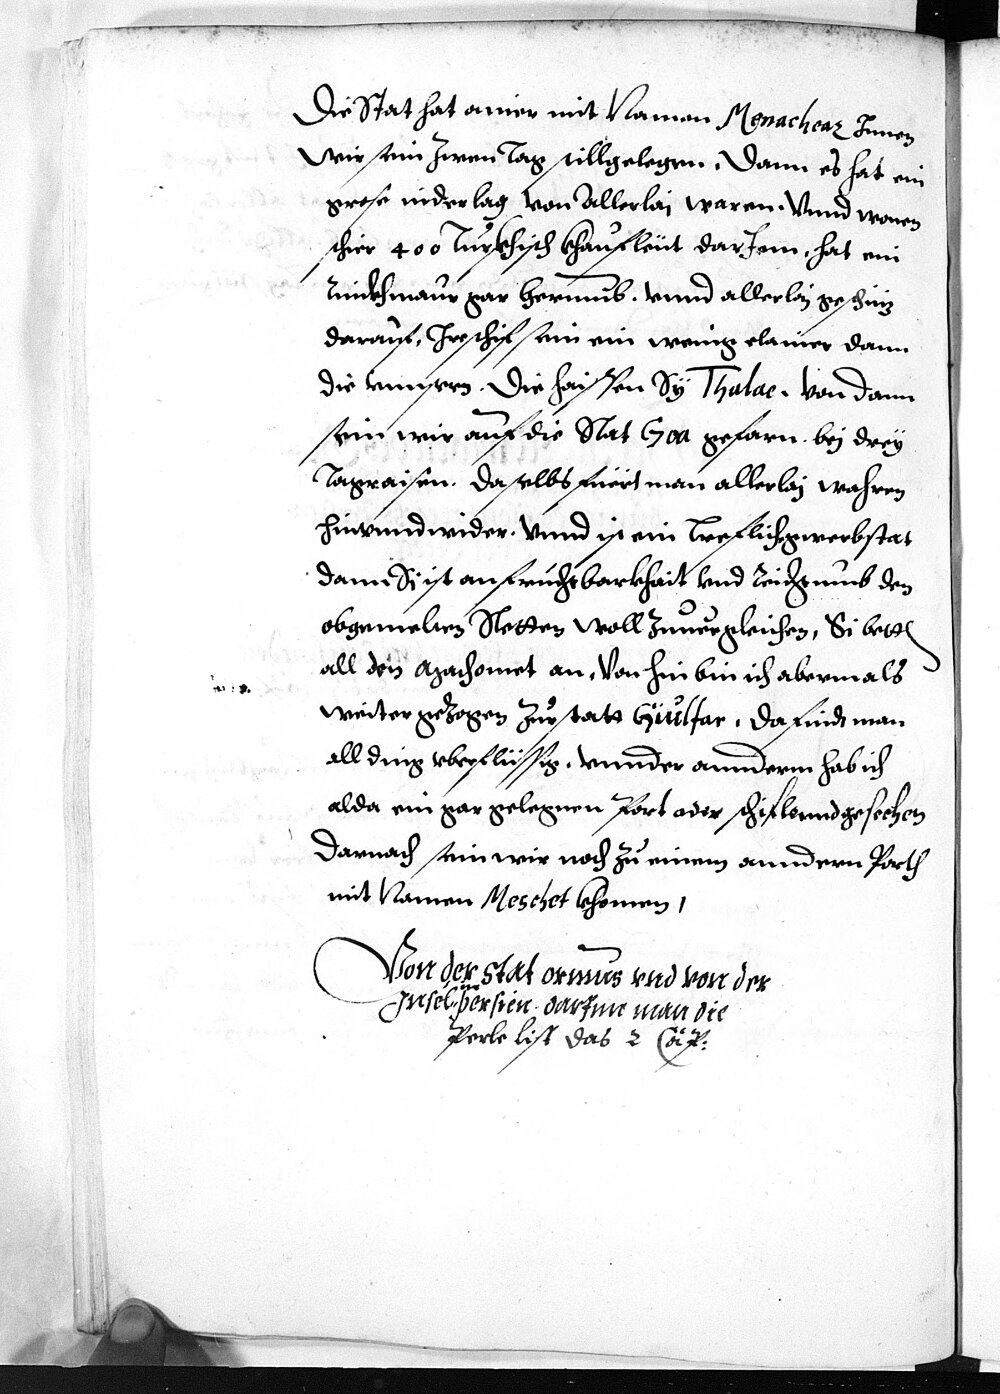 Die Stat hat ainer mit Namen Menacheaz Innen
wir sein zwen tag stillgelegen. Dann es hat ein
grose niderlag von allerlaj waren. Vnnd wonen
schier 400 Türckhisch khaufleüt darinn, hat ein
Rinckhmaur gar herumb. vnnd allerlaj geschüz
darauf, Ire schif sein ein wenig clainer dann
die vnnsern. Die haissen Sÿ Thalae. Von dann
sein wir auf die Stat Goa gefarn. bej dreÿ
Tagraisen. daselbs füert man allerlaj wahren
hin vnnd wider. Vnnd ist ein treflich gwerbstat
dann Si ist an fruchtbarkhait vnd Reichtumb den
obgemelten Stetten woll zuuergleichen, Si bett
all den Machomet an, Von hin bin ich abermals
weiter gezogen zur statt Giulfar, da findt man
all ding vberflüssig. vnnder anndern hab ich
alda ein gar gelegnen Port oder schiflennd gesechen
Darnach sein wir noch zu einem anndern Porth
mit Namen Meschet khomen,
Von der Stat ormus vnd von der
Insel in persien darinn man die
Perle list das 2 Cap: